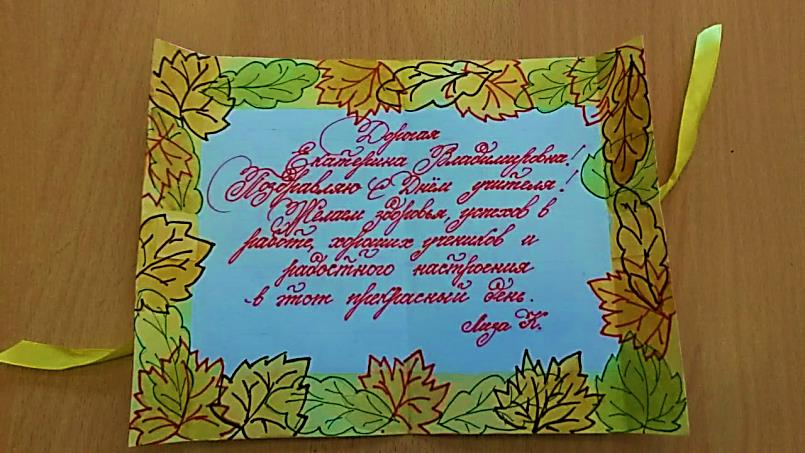 Дорогая
Екатерина Владимировна!
Поздравляю с Днём учителя!
Желаем здоровья, успехов в
работе, хороших учеников и
радостного настроения
в этот прекрасный день.
Лиза К.